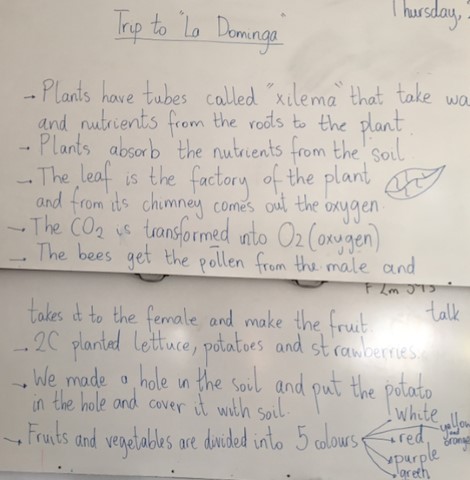 Thursday,
Trip to "La Dominga"
→ Plants have tubes called "xilema" that take wa
and nutrients from the roots to the plant.
→ Plants absorb the nutrients from the soil
→ The leaf is the factory of the plant
and from its chimney comes out the oxygen.
→ The CO2 is transformed into O2 (oxygen)
→ The bees get the pollen from the male and
takes it to the female and make the fruit.
talk
→ 2C planted lettuce, potatoes and strawberries.
→ We made a hole in the soil and put the potato
in the hole and cover it with soil.
→ Fruits and vegetables are divided into 5 colours
white
yellow
and
orange
red
purple
green